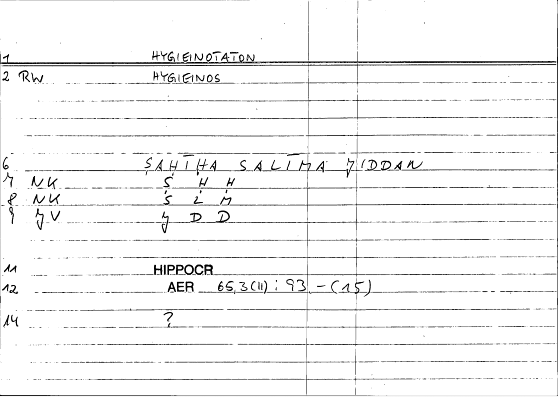 1 HYGIEINOTATON
2 RW HYGIEINOS
6 ṢAḤĪḤA SALĪMA ǦIDDAN
7 NK Ṣ Ḥ Ḥ
8 NK S L M
9 JV Ǧ D D
11 HIPPOCR
12 AER 65,3(11) : 93 - (15)
14 ?